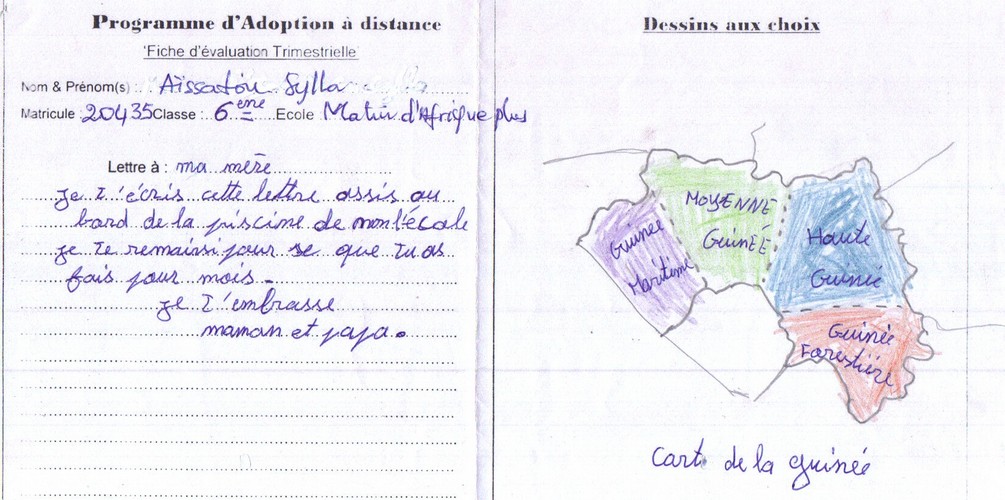 Programme d'Adoption à distance
'Fiche d'évaluation Trimestrielle'
Nom & Prénom(s) : Aïssatou Sylla
Matricule : 20435 Classe : 6ème Ecole : Matin d'Afrique plus
Lettre à : ma mère
Je t'écris cette lettre assis au
bord de la piscine de mon l'école
je te remaisi pour se que tu as
fais pour mois.
je t'embrasse
maman et papa.
Dessins aux choix
MOYENNE
GUINÉÉ
Guinee
Maritime
Haute
Guinié
Guinée
Forestière
Cart de la guinée